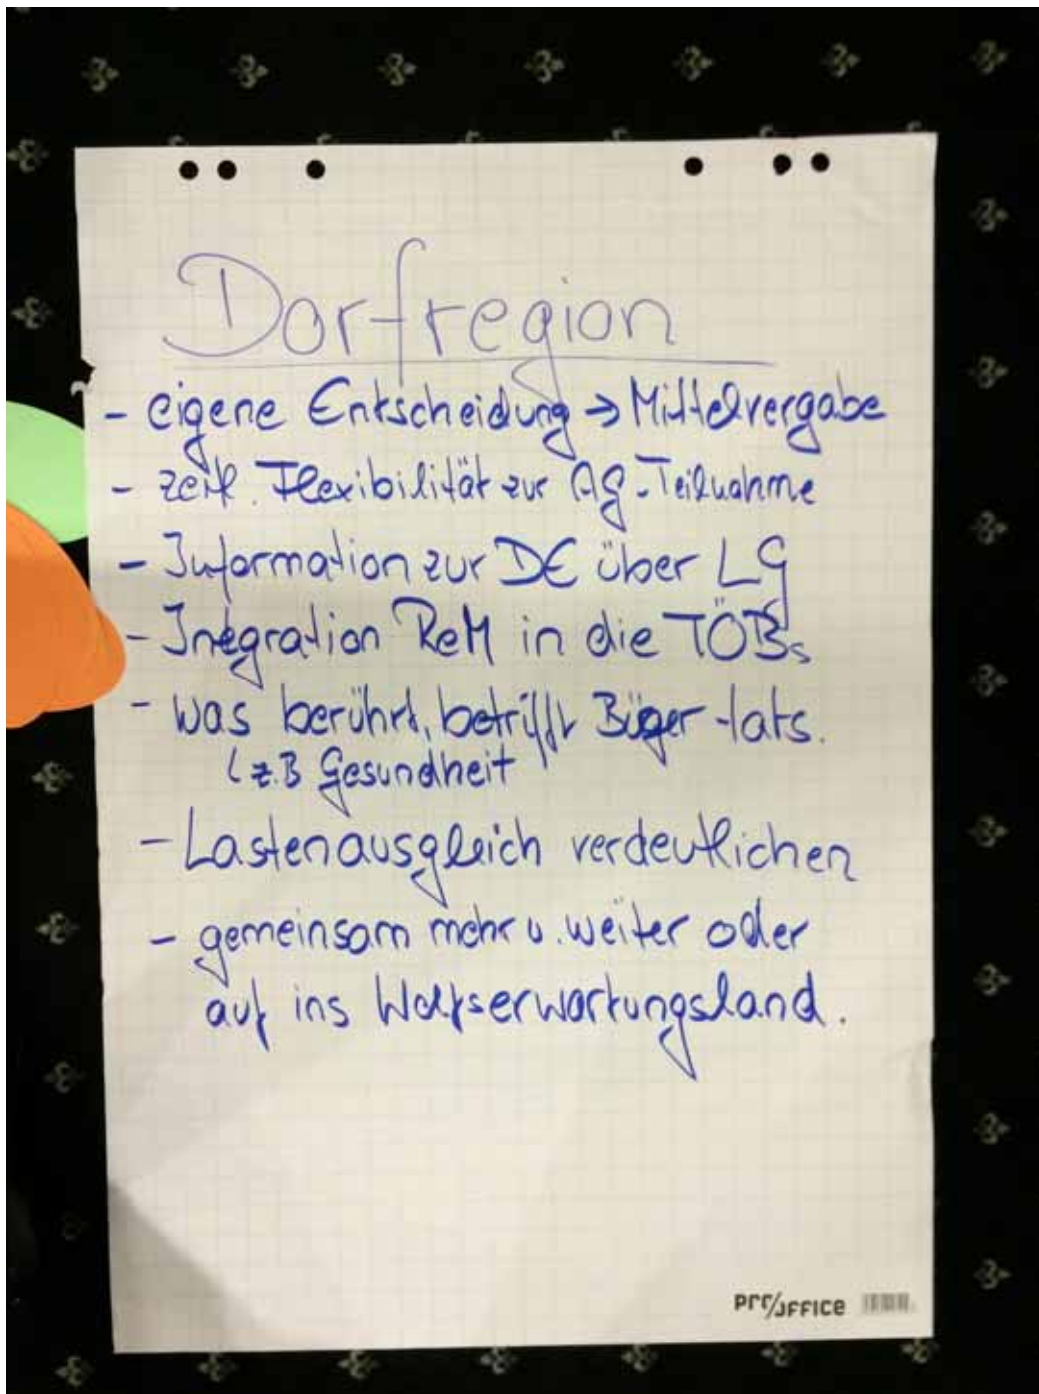 Dorfregion
- eigene Entscheidung → Mittelvergabe
- zeitl. Flexibilität zur AG-Teilnahme
- Information zur DE über LG
- Inegration ReM in die TÖBs
- was berührt, betrifft Büger tats.
(z.B Gesundheit
- Lastenausgleich verdeutlichen
- gemeinsam mehr u. weiter oder
auf ins Wolfserwartungsland.
Pro/OFFICE